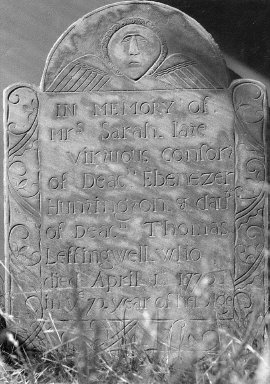 IN MEMORY OF
Mrs. Sarah, late
virtuous Consort
of Deacn. Ebenezer
Huntington, & daur.
of Deacn. Thomas
Leffingwell, who
died April
in ye 72 year of her age